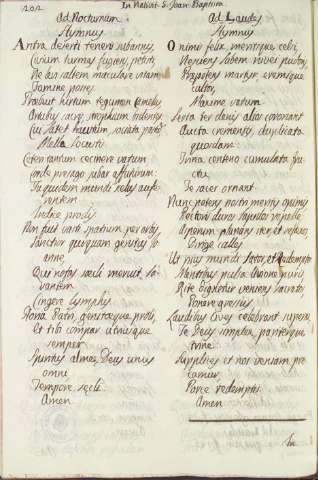 202
In Nativit. S. Joan. Baptism.
Ad Nocturnum
Hymnus
Antra deserti teneris sub annis,
Civium turmas fugiens, petisti,
Ne levi saltem maculare vitam
Famine posses
Præbuit hirtum tegumen Camelus
Artubus sacris, strophium bidentes,
Cui latex haustum, sociata pastum
Mella locustis
Cæteri tantum cecinere vatum
corde præsago jubar affuturum:
Tu quidem mundi scelus aufe-
rentem
Indice prodis
Non fuit vasti spatium per orbis
Sanctior quisquam genitus Jo-
anne,
Qui nefas sæcli meruit la-
vantem
Cingere lymphis
Gloria Patri, genitæque proli,
Et tibi compar utriusque
semper
Spiritus alme, Deus unus
omne
Tempore sæcli.
Amen.
Ad Laudes
Hymnus
O nimis felix, meritique celsi,
Nesciens labem nivei pudoris,
Præpotens martyr eremique
cultor,
Maxime vatum
Serta ter denis alios coronant
Aucta crementis, duplicata
quosdam:
Trina centeno cumulata fru-
ctu
Te sacer ornant
Nunc potens nostri meritis opimis
Pectoris duros lapides repelle,
Asperum planans iter, et reflexos
Dirige calles
Ut pius mundi Sator, et Redemptor
Mentibus pulsa
Rite dignetur veniens sacratos
Ponere gressus
Laudibus Cives celebrant superni
Te Deus simplex, pariterque
trine
Supplices et nos veniam pre-
camur,
Parce redemptis.
Amen